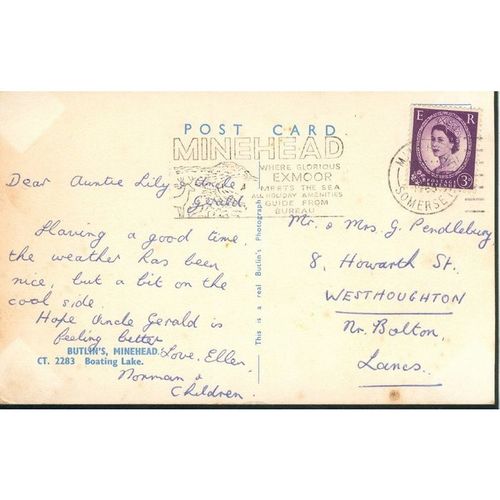 POST CARD
MINEHEAD
WHERE GLORIOUS
EXMOOR
MEETS THE SEA
ALL HOLIDAY AMENITIES
GUIDE FROM
BUREAU
E R
POSTAGE
3D
SOMERSET
Dear Auntie Lily & Uncle
Gerald.
Having a good time
the weather has been
nice, but a bit on the
cool side.
Hope Uncle Gerald is
feeling better
Love. Ellen
Norman &
Children.
BUTLIN'S, MINEHEAD.
CT. 2283 Boating Lake.
This is a real Butlin's Photograph
Mr. & Mrs. G. Pendlebury
8, Howarth St.
WESTHOUGHTON
Nr. Bolton.
Lancs.